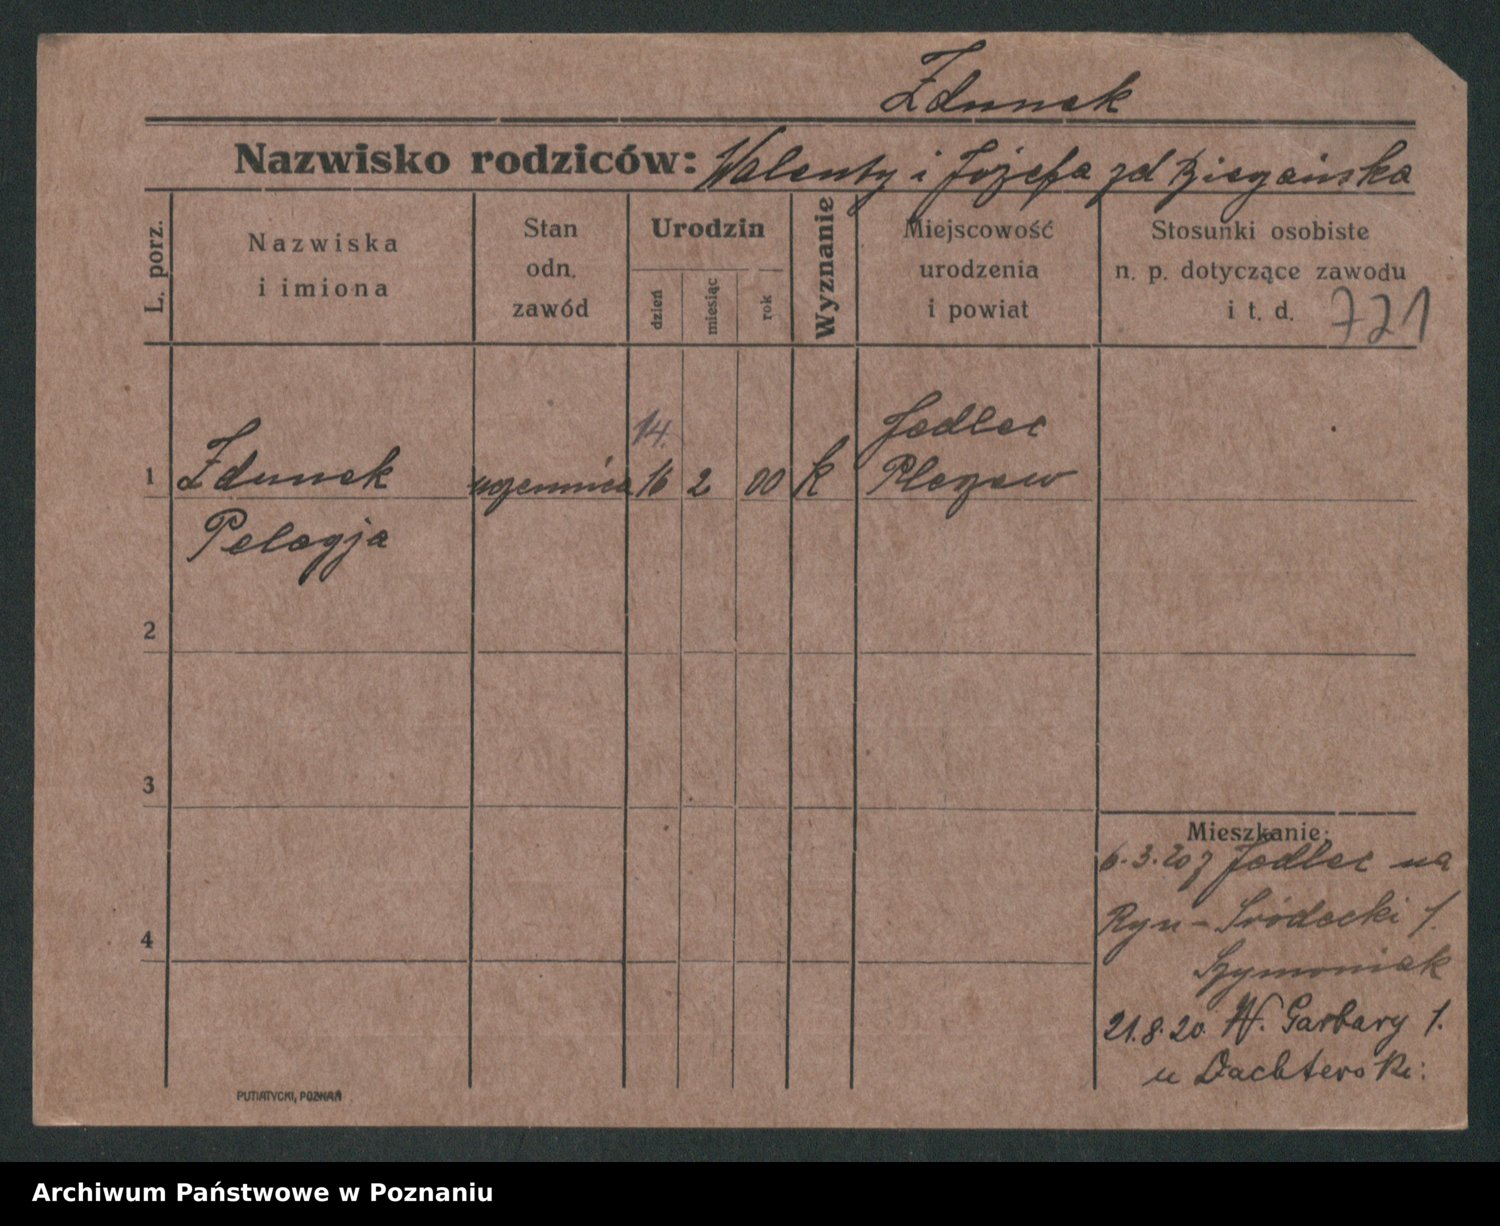 Zdunek
Nazwisko rodziców: Walenty i Józefa zd Biegańska
L. porz.
Nazwiska
i imiona
Stan
odn.
zawód
Urodzin
dzień
miesiąc
rok
Wyznanie
Miejscowość
urodzenia
i powiat
Stosunki osobiste
n. p. dotyczące zawodu
i t. d. 721
14.
Jedlec
1 Zdunek uczennica 16 2 00 k Pleszew
Pelagja
2
3
4
Mieszkanie:
6.3.20 z Jedlec na
Ryn-Śródecki 1.
Szymoniak
21.8.20. W. Garbary 1.
u
PUTIATYCKI, POZNAŃ
Archiwum Państwowe w Poznaniu